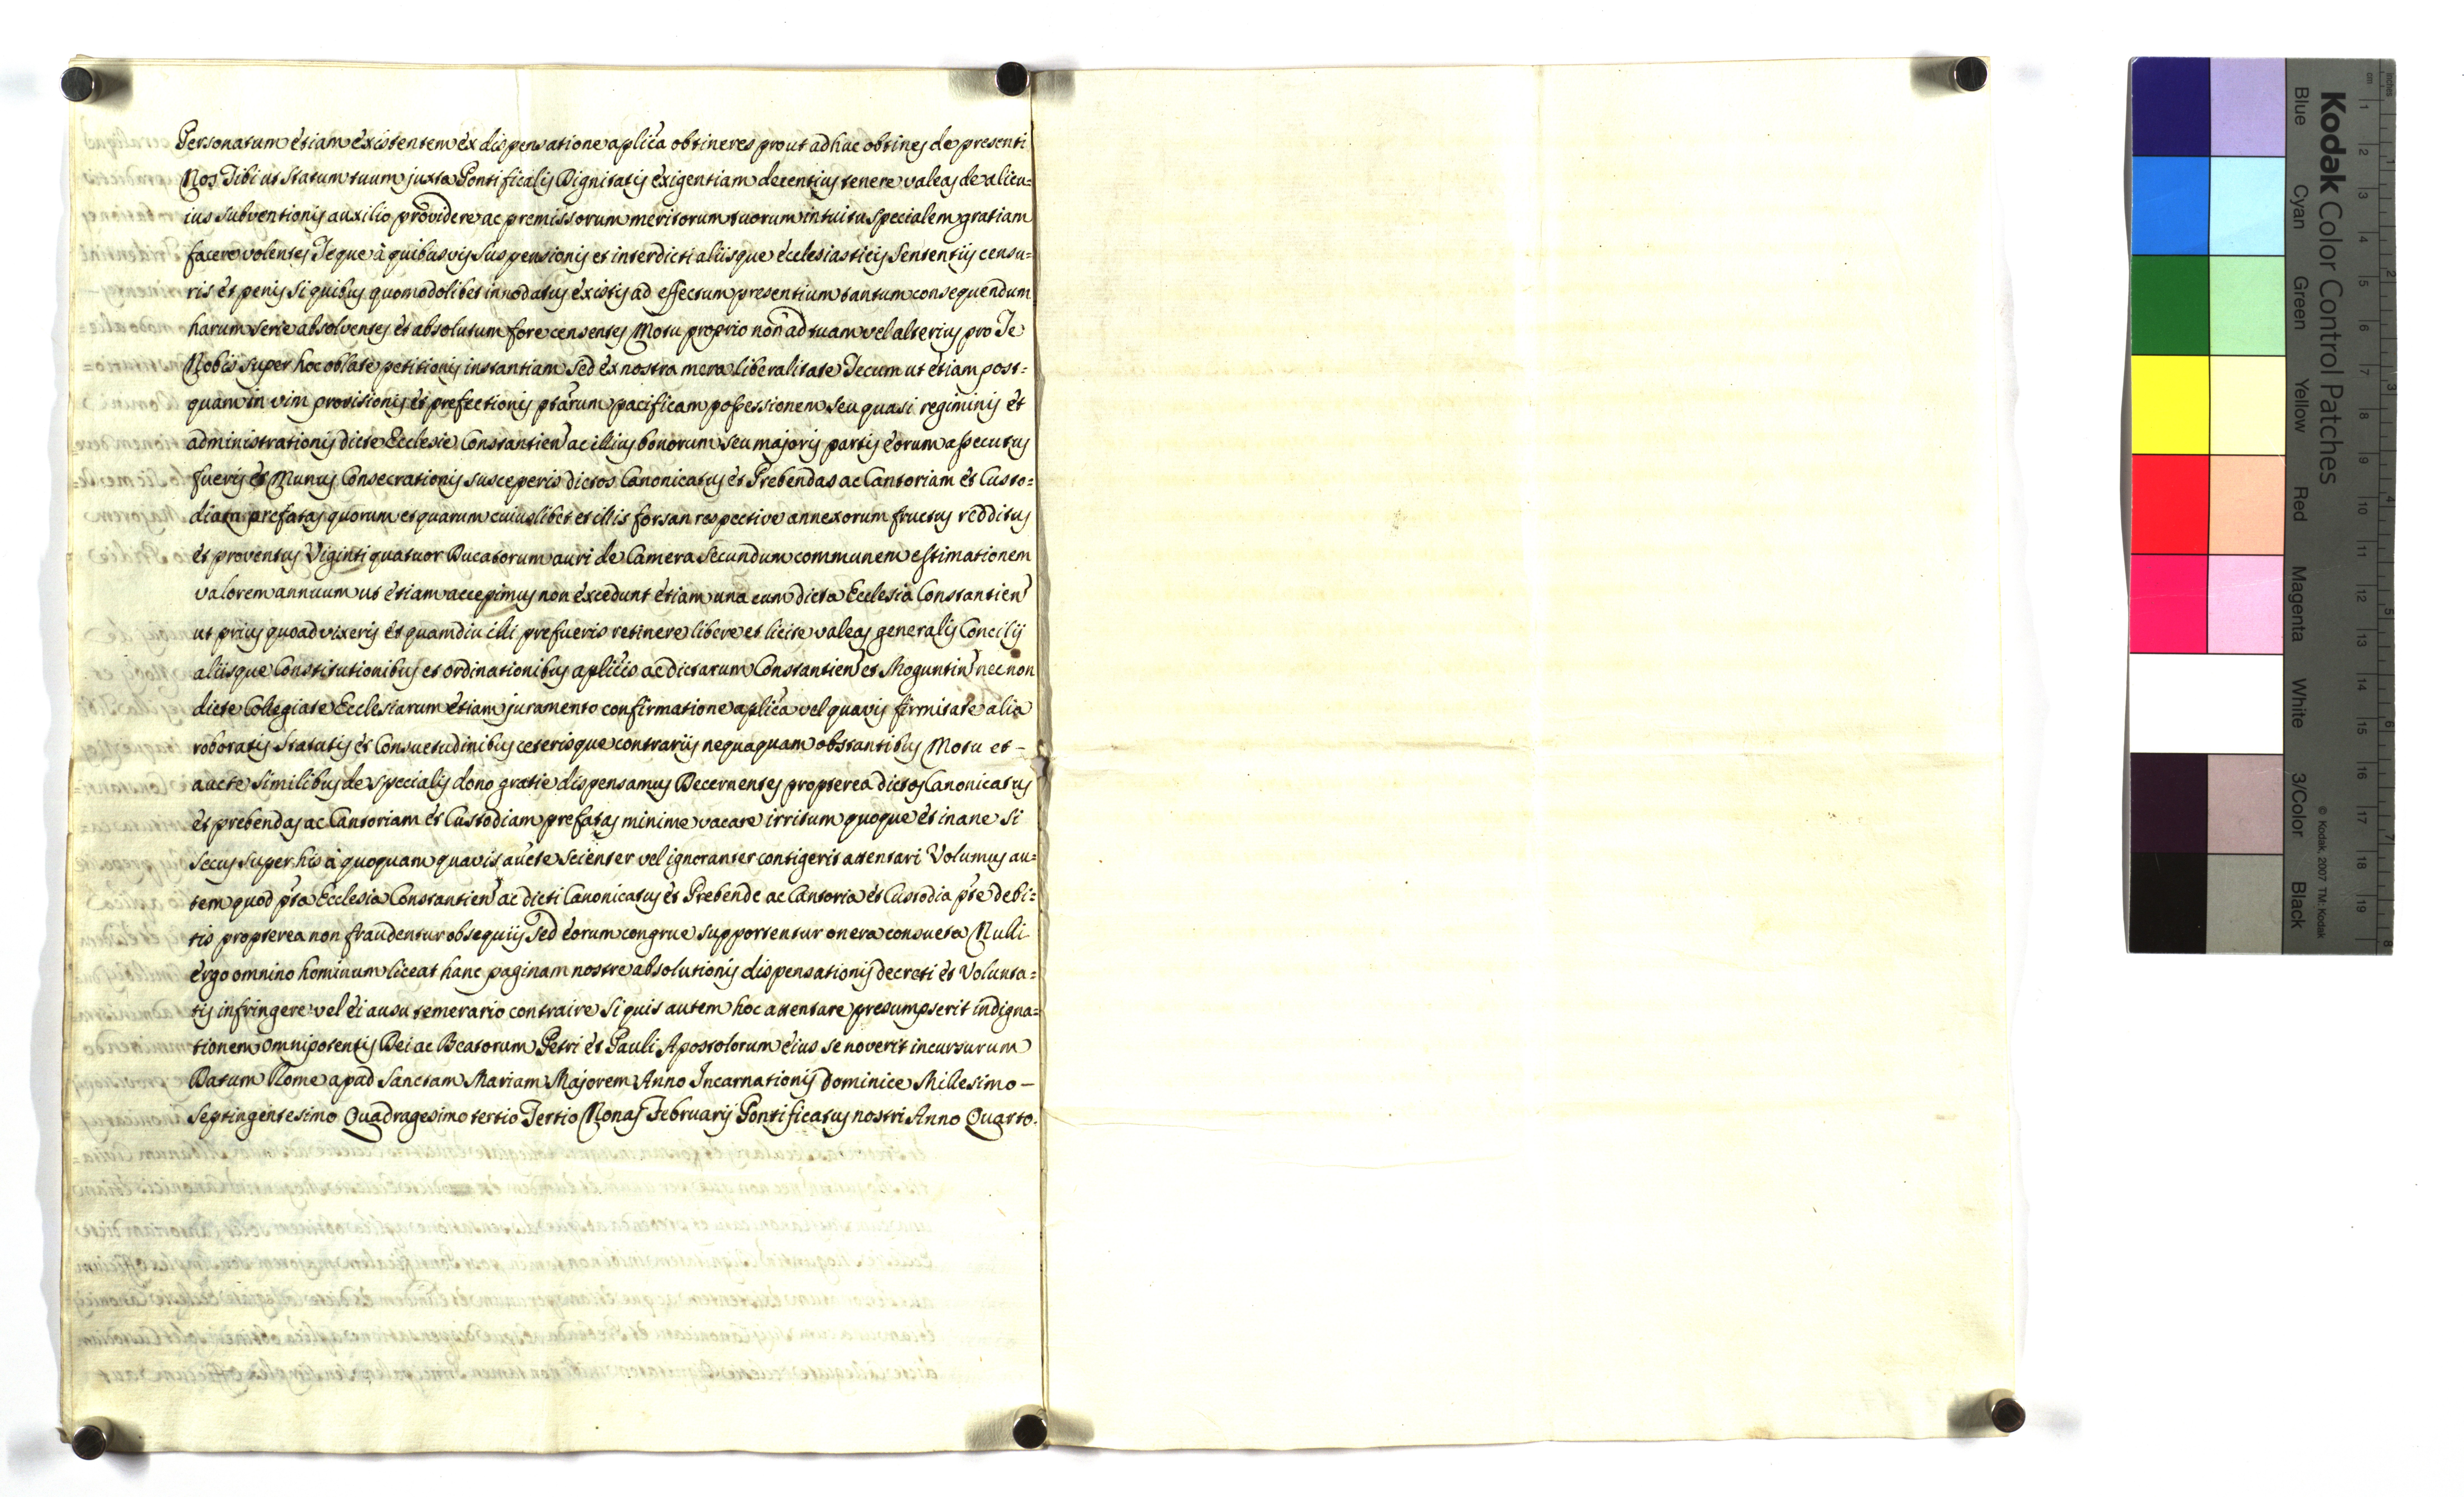 Personatum étiam éxistentem éx dispensatione aplîca obtineres prout adhuc obtines de presenti
Nos Tibi ut Statum tuum juxta Pontificalis Dignitatis éxigentiam decentius tenere valeas de alicu=
ius subventionis auxilio providere ac premissorum meritorum tuorum intuitu specialem gratiam
facere volentes Teque à quibusvis Suspensionis et interdicti aliisque écclesiasticis Sententiis censu=
ris ét penis si quibus quomodolibet innodatus éxistis ad effectum presentium tantum consequendum
harum serie absolventes ét absolutum fore censentes Motu proprio non ad tuam vel alterius pro Te
Nobis super hoc oblate petitionis instantiam sed éx nostra mera liberalitate Tecum ut étiam post=
quam in vim provisionis ét prefectionis ptarum pacificam possessionem seu quasi regiminis ét
administrationis dicte Ecclesie Constantien ac illius bonorum seu majoris partis éorum assecutus
fueris ét Munus Consecrationis susceperis dictos Canonicatus ét Prebendas ac Cantoriam ét Custo=
diam prefatas quorum et quarum cuiuslibet et illis forsan respective annexorum fructus redditus
ét proventus Viginti quatuor Ducatorum auri de Camera Secundum communem estimationem
valorem annuum ut étiam accepimus non éxcedunt étiam una cum dicta Ecclesia Constantien
ut prius quoad vixeris ét quamdiu illi prefueris retinere libere et licite valeas generalis Concilij
aliisque Constitutionibus et ordinationibus aplicis ac dictarum Constantien et Moguntin nec non
dicte Collegiate Ecclesiarum étiam juramento confirmatione aplica vel quavis firmitate alia
roboratis Statutis ét Consuetudinibus ceterisque contrariis nequaquam obstantibus Motu et -
aucte Similibus de specialis dono gratie dispensamus Decernentes propterea dictos Canonicatus
ét prebendas ac Cantoriam ét Custodiam prefatas minime vacare irritum quoque ét inane Si
Secus Super his à quoquam quavis aucte Scienter vel ignoranter contigerit attentari Volumus au=
tem quod pta Ecclesia Constantien ac dicti Canonicatus ét Prebende ac Cantoria ét Custodia pte debi=
tis propterea non fraudentur obsequiis Sed éorum congrue supportentur onera consueta Nulli
érgo omnino hominum liceat hanc paginam nostre absolutionis dispensationis decreti ét Volunta=
tis infringere vel éi ausu temerario contraire Si quis autem hoc attentare presumpserit indigna=
tionem omnipotentis Dei ac Beatorum Petri ét Pauli Apostolorum éius se noverit incursurum
Datum Rome apud Sanctam Mariam Majorem Anno Incarnationis Dominice Millesimo -
Septingentesimo Quadragesimo tertio Tertio Nonas Februarij Pontificatus nostri Anno Quarto.
Kodak Color Control Patches
Blue Cyan Green Yellow Red Magenta White 3/Color Black
© Kodak, 2007 TM: Kodak
cm 1 2 3 4 5 6 7 8 9 10 11 12 13 14 15 16 17 18 19
inches 1 2 3 4 5 6 7 8